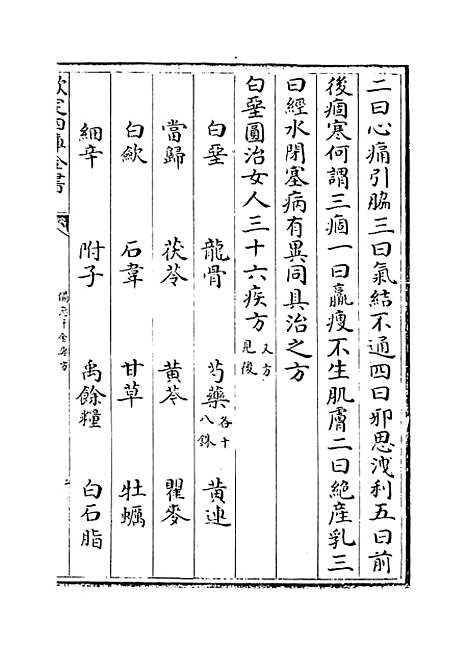 二曰心痛引脇三曰氣結不通四曰邪思洩利五曰前
後痼寒何謂三痼一曰羸瘦不生肌膚二曰絶産乳三
曰經水閉塞病有異同具治之方
白堊圓治女人三十六疾方又方見後
白堊 龍骨 芍藥各十八銖 黄連
當歸 茯苓 黄芩 瞿麥
白歛 石韋 甘草 牡蠣
細辛 附子 禹餘糧 白石脂
欽定四庫全書
備急千金要方